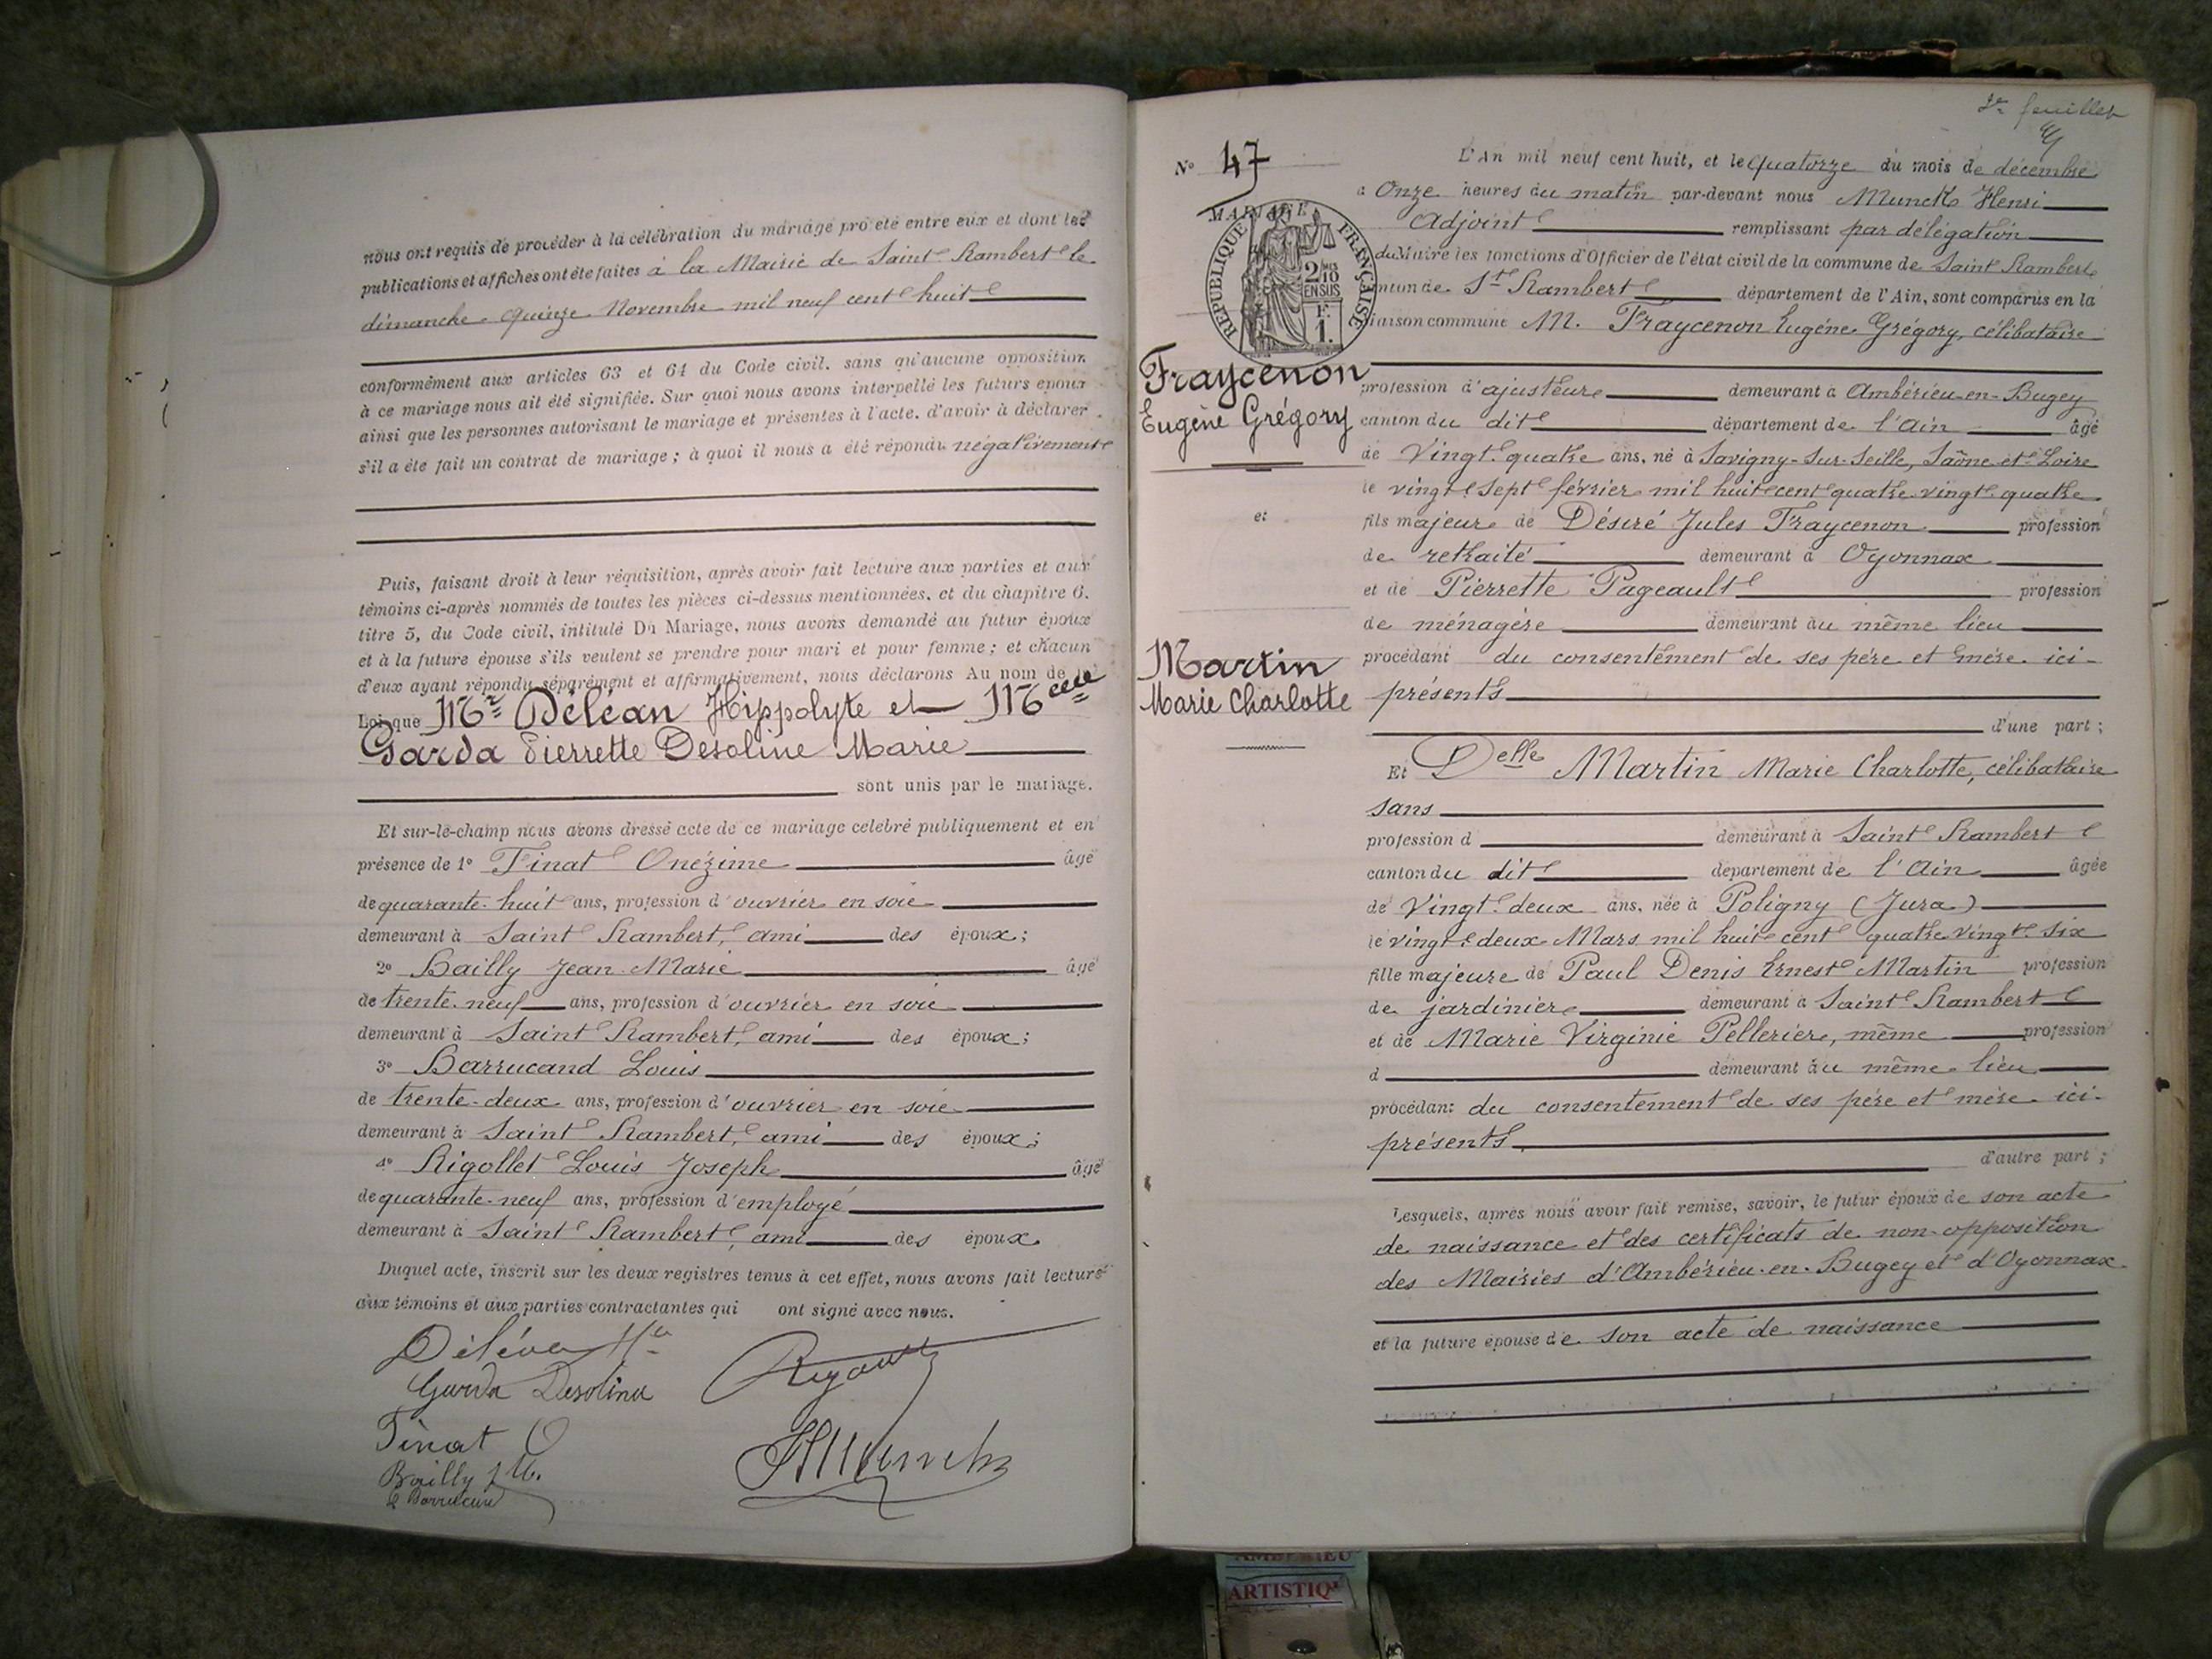 nous ont requis de procéder à la célébration du mariage projeté entre eux et dont les
publications et affiches ont été faites à la Mairie de Saint Rambert le
dimanche quinze Novembre mil neuf cent huit
conformément aux articles 63 et 64 du Code civil. sans qu'aucune opposition
à ce mariage nous ait été signifiée. Sur quoi nous avons interpellé les futurs époux
ainsi que les personnes autorisant le mariage et présentes à l'acte. d'avoir à déclarer
s'il a été fait un contrat de mariage ; à quoi il nous a été répondu négativement
Puis, faisant droit à leur réquisition, après avoir fait lecture aux parties et aux
témoins ci-après nommés de toutes les pièces ci-dessus mentionnées, et du chapitre 6.
titre 5, du Code civil, intitulé Du Mariage, nous avons demandé au futur époux
et à la future épouse s'ils veulent se prendre pour mari et pour femme ; et chacun
d'eux ayant répondu séparément et affirmativement, nous déclarons Au nom de
Loi que Mr Déléan Hippolyte et Melle
Garda Pierrette Desoline Marie
sont unis par le mariage.
Et sur-le-champ nous avons dressé acte de ce mariage célébré publiquement et en
présence de 1° Tinat Onézime âgé
de quarante-huit ans, profession d'ouvrier en soie
demeurant à Saint Rambert, ami des époux ;
2° Bailly Jean-Marie âgé
de trente-neuf ans, profession d'ouvrier en soie
demeurant à Saint Rambert, ami des époux ;
3° Barrucand Louis
de trente-deux ans, profession d'ouvrier en soie
demeurant à Saint Rambert, ami des époux ;
4° Rigollet Louis Joseph âgé
de quarante-neuf ans, profession d'employé
demeurant à Saint Rambert, ami des époux
Duquel acte, inscrit sur les deux registres tenus à cet effet, nous avons fait lecture
aux témoins et aux parties contractantes qui ont signé avec nous.
Garda Desolina
Tinat O
Bailly J M.
HMunck
feuillet
N° 47
MARIAGE
RÉPUBLIQUE FRANÇAISE
2/10 EN SUS
F. 1.
Fraycenon
Eugène Grégory
et
Martin
Marie Charlotte
L'An mil neuf cent huit, et le quatorze du mois de décembre
à Onze heures du matin par-devant nous Munck Henri
Adjoint remplissant par délégation
du Maire les fonctions d'Officier de l'état civil de la commune de Saint Rambert
canton de St Rambert département de l'Ain, sont comparus en la
Maison commune M. Fraycenon Eugène Grégory, célibataire
profession d'ajusteur demeurant à Ambérieu-en-Bugey
canton du dit département de l'Ain âgé
de Vingt-quatre ans, né à Savigny-Sur-Seille, Saône-et-Loire
le vingt-sept février mil huit cent quatre-vingt-quatre
fils majeur de Désiré Jules Fraycenon profession
de retraité demeurant à Oyonnax
et de Pierrette Pageault profession
de ménagère demeurant au même lieu
procédant du consentement de ses père et mère ici-
présents
d'une part ;
Et Delle Martin Marie Charlotte, célibataire
sans
profession d demeurant à Saint Rambert
canton du dit département de l'Ain âgée
de Vingt-deux ans, née à Poligny (Jura)
le vingt-deux Mars mil huit cent quatre vingt six
fille majeure de Paul Denis Ernest Martin profession
de jardinier demeurant à Saint Rambert
et de Marie Virginie Pellerier, même profession
d demeurant au même lieu
procédant du consentement de ses père et mère ici-
présents
d'autre part ;
Lesquels, après nous avoir fait remise, savoir, le futur époux de son acte
de naissance et des certificats de non-opposition
des Mairies d'Ambérieu-en-Bugey et d'Oyonnax
et la future épouse de son acte de naissance
AMBERIEU
ARTISTIQ